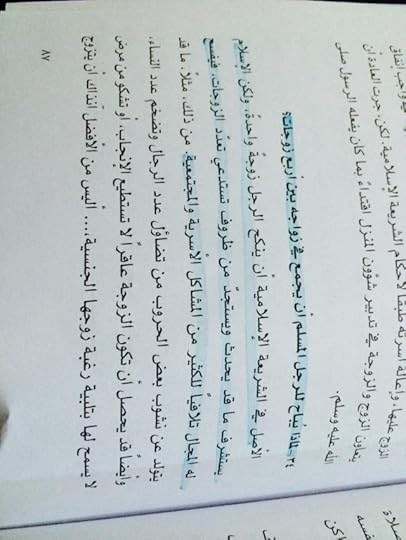 الزوج عليها، وإعالة أسرته طبقاً لأحكام الشريعة الإسلامية. لكن، جرت العادة أن
يتعاون الزوج والزوجة في تدبير شؤون المنزل اقتداءً بما كان يفعله الرسول صلى
الله عليه وسلم.
٣٤ - لماذا يُباح للرجل المسلم أن يجمع في زواجه بين أربع زوجات؟
الأصل في الشريعة الإسلامية أن ينكح الرجل زوجة واحدةً، ولكن الإسلام
يستشرف ما قد يحدث ويستجدّ من ظروف تستدعي تعدّد الزوجات، فيفسح
له المجال تلافياً للكثير من المشاكل الأسرية والمجتمعية. من ذلك، مثلاً، ما قد
يتولد عن نشوب بعض الحروب من تضاؤل عدد الرجال وتضخم عدد النساء،
وأيضاً قد يحصل أن تكون الزوجة عاقراً لا تستطيع الإنجاب، أو تشكو من مرض
لا يسمح لها بتلبية رغبة زوجها الجنسية.... أليس من الأفضل آنذاك أن يتزوج
٨٧